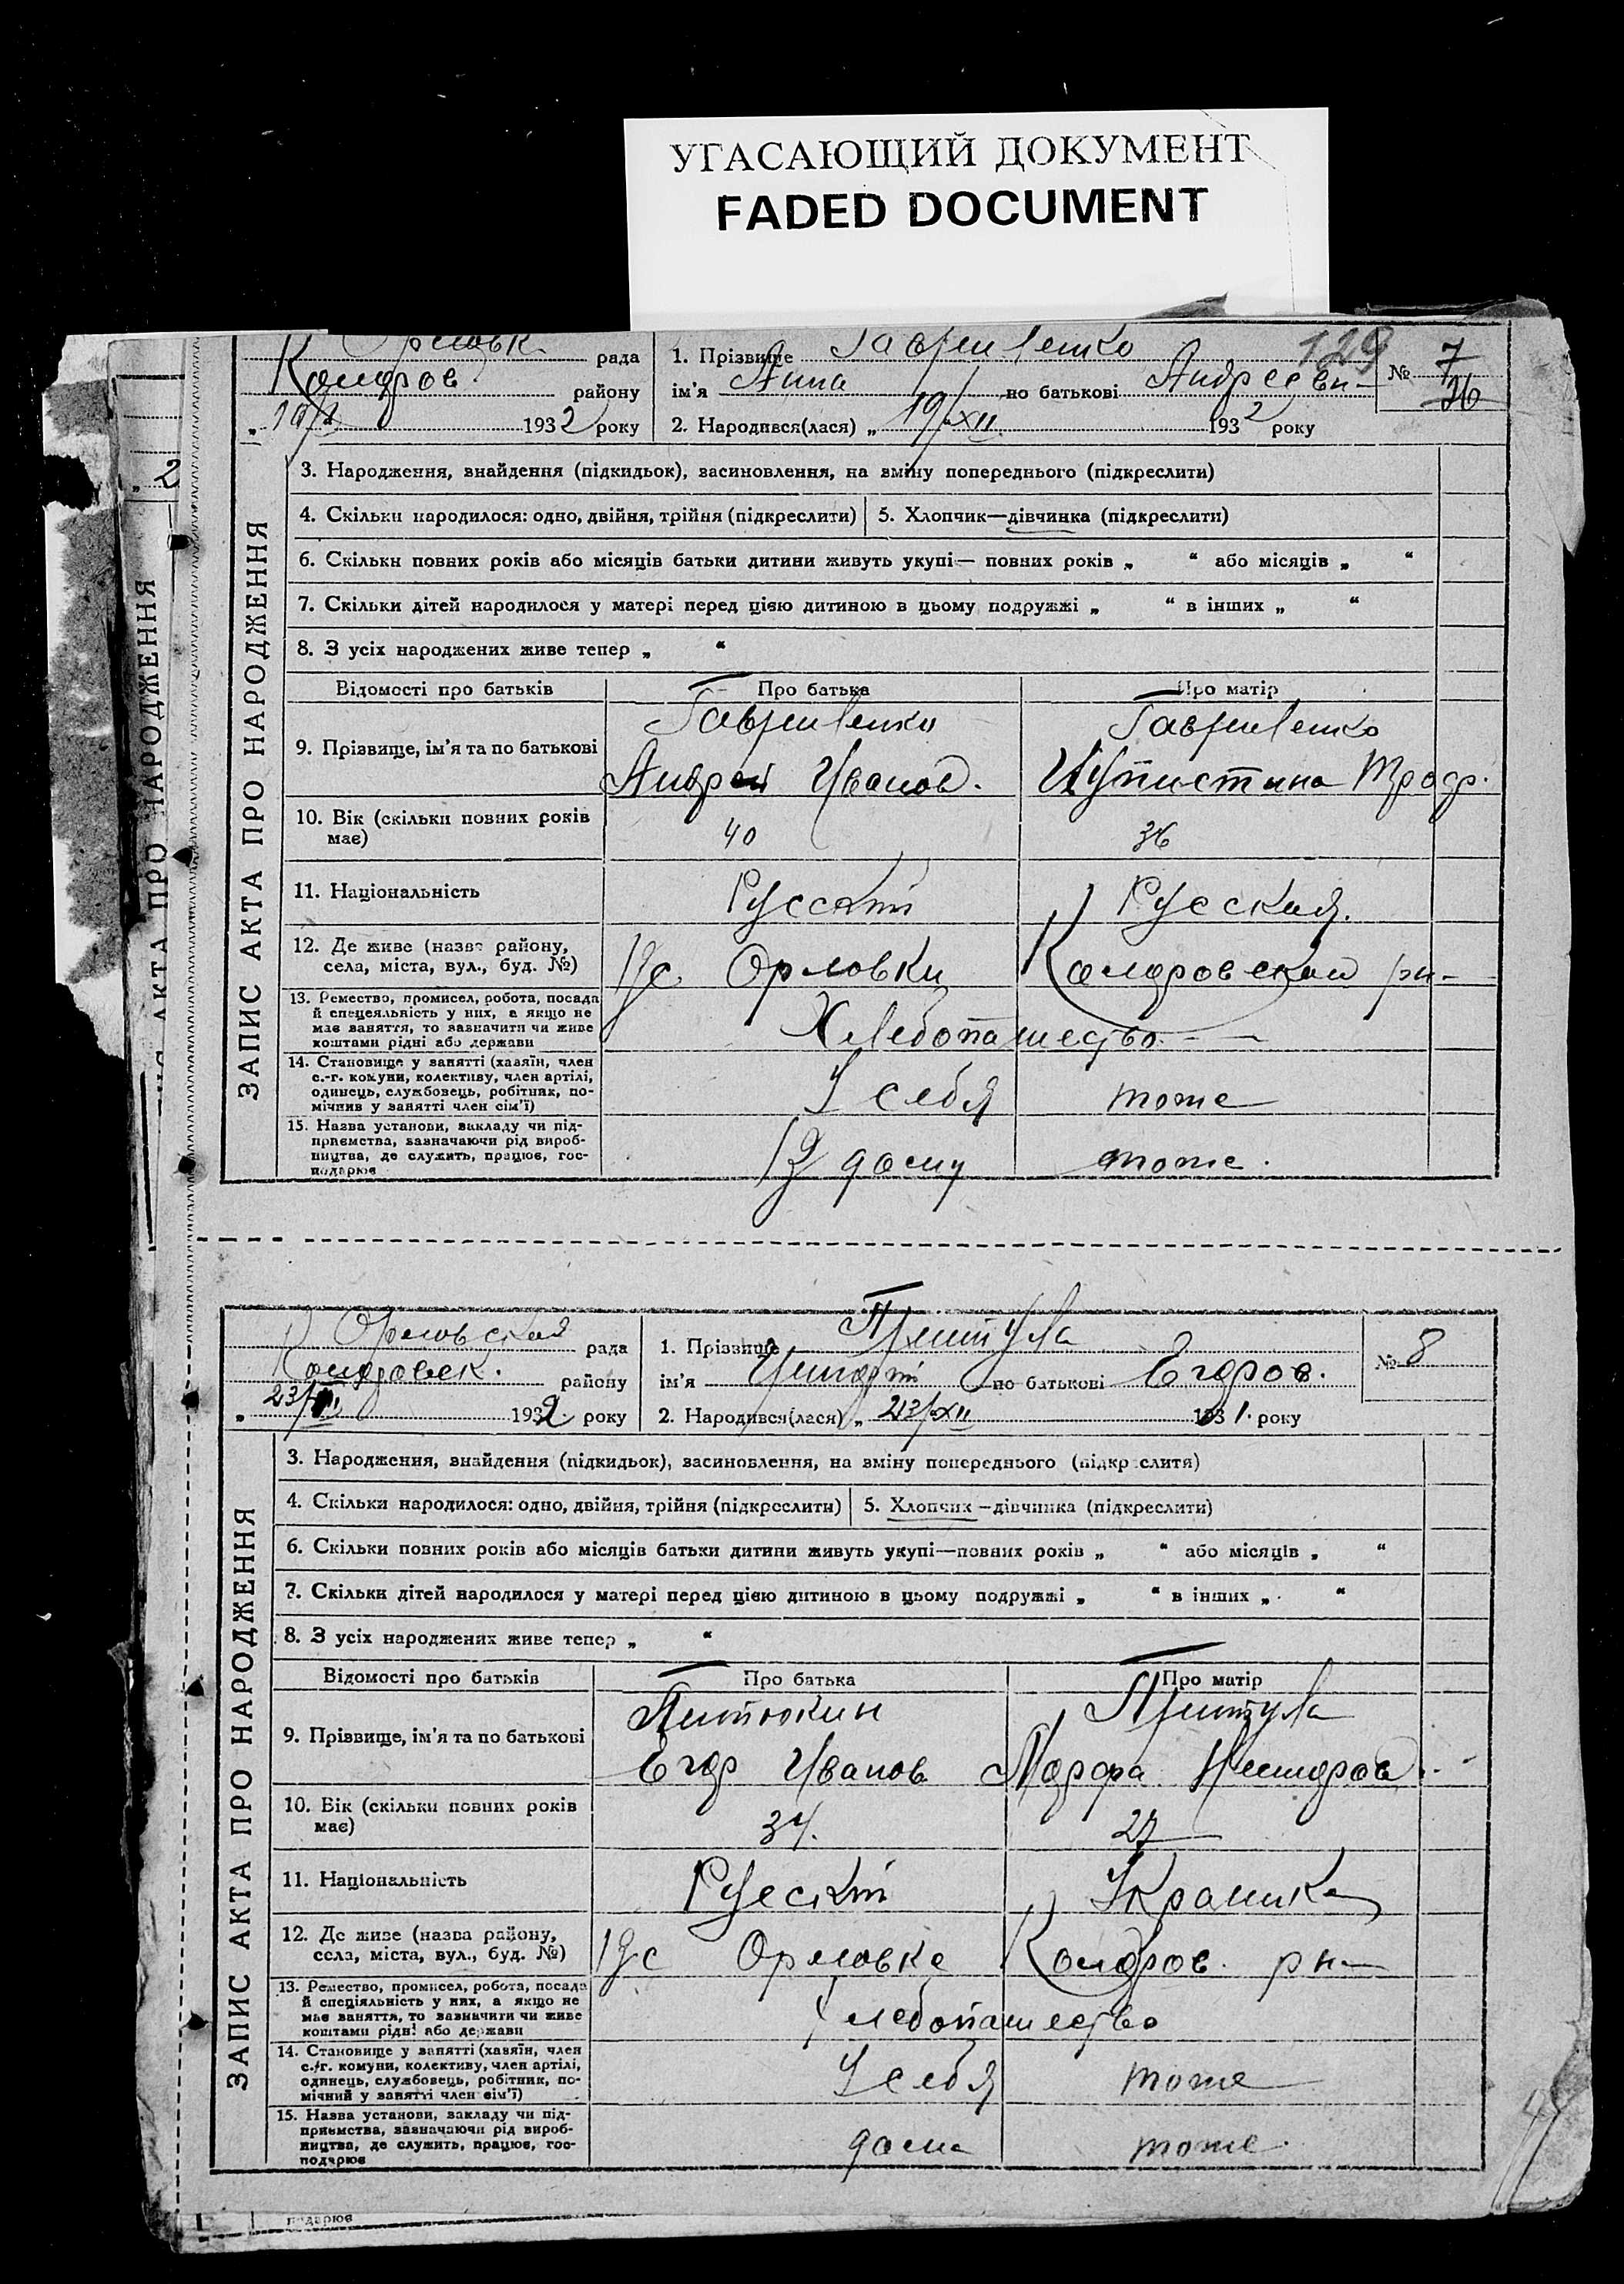 УГАСАЮЩИЙ ДОКУМЕНТ
FADED DOCUMENT
рада
Комаров району
1932 року
1. Прізвище Гавриленко
129
ім'я Анна по батькові Андреевн
№ 7
36
2. Народився(лася) „ 19/XII 1932 року
ЗАПИС АКТА ПРО НАРОДЖЕННЯ
3. Народження, знайдення (підкидьок), засиновлення, на зміну попереднього (підкреслити)
4. Скільки народилося: одно, двійня, трійня (підкреслити)
5. Хлопчик—дівчинка (підкреслити)
6. Скільки повних років або місяців батьки дитини живуть укупі— повних років „ “ або місяців „ “
7. Скільки дітей народилося у матері перед цією дитиною в цьому подружжі „ “ в інших „ “
8. З усіх народжених живе тепер „ “
Відомості про батьків Про батька Про матір
9. Прізвище, ім'я та по батькові
Гавриленко Гавриленко
Андрей Иванов.
10. Вік (скільки повних років має)
40 36
11. Національність Русский Русская.
12. Де живе (назва району, села, міста, вул., буд. №)
с. Орловки рн
13. Ремество, промисел, робота, посада
й спеціяльність у них, а якщо не
має заняття, то зазначити чи живе
коштами рідні або держави
Хлебопашество
14. Становище у занятті (хазяїн, член
с.-г. комуни, колективу, член артілі,
одинець, службовець, робітник, по-
мічник у занятті член сім'ї)
У себя тоже
15. Назва установи, закладу чи під-
приємства, зазначаючи рід вироб-
ництва, де служить, працює, гос-
подарює
В дому тоже.
Орловская рада
району
1932 року
1. Прізвище Притула
ім'я по батькові Егоров.
№ 8
2. Народився(лася) „ 23/XII 1931. року
ЗАПИС АКТА ПРО НАРОДЖЕННЯ
3. Народження, знайдення (підкидьок), засиновлення, на зміну попереднього (підкреслитя)
4. Скільки народилося: одно, двійня, трійня (підкреслити)
5. Хлопчик—дівчинка (підкреслити)
6. Скільки повних років або місяців батьки дитини живуть укупі—повних років „ “ або місяців „ “
7. Скільки дітей народилося у матері перед цією дитиною в цьому подружжі „ “ в інших „ “
8. З усіх народжених живе тепер „ “
Відомості про батьків Про батька Про матір
9. Прізвище, ім'я та по батькові
Питюкин Притула
Егор Иванов Марфа
10. Вік (скільки повних років має)
34. 27
11. Національність Русский Украинка
12. Де живе (назва району, села, міста, вул., буд. №)
с Орловке рн
13. Ремество, промисел, робота, посада
й спеціяльність у них, а якщо не
має заняття, то зазначити чи живе
коштами рідні або держави
Хлебопашество
14. Становище у занятті (хазяїн, член
с.-г. комуни, колективу, член артілі,
одинець, службовець, робітник, по-
мічний у занятті член сім'ї)
У себя тоже
15. Назва установи, закладу чи під-
приємства, зазначаючи рід вироб-
ництва, де служить, працює, гос-
подарює
дома тоже.
подарює
ЗАПИС АКТА ПРО НАРОДЖЕННЯ